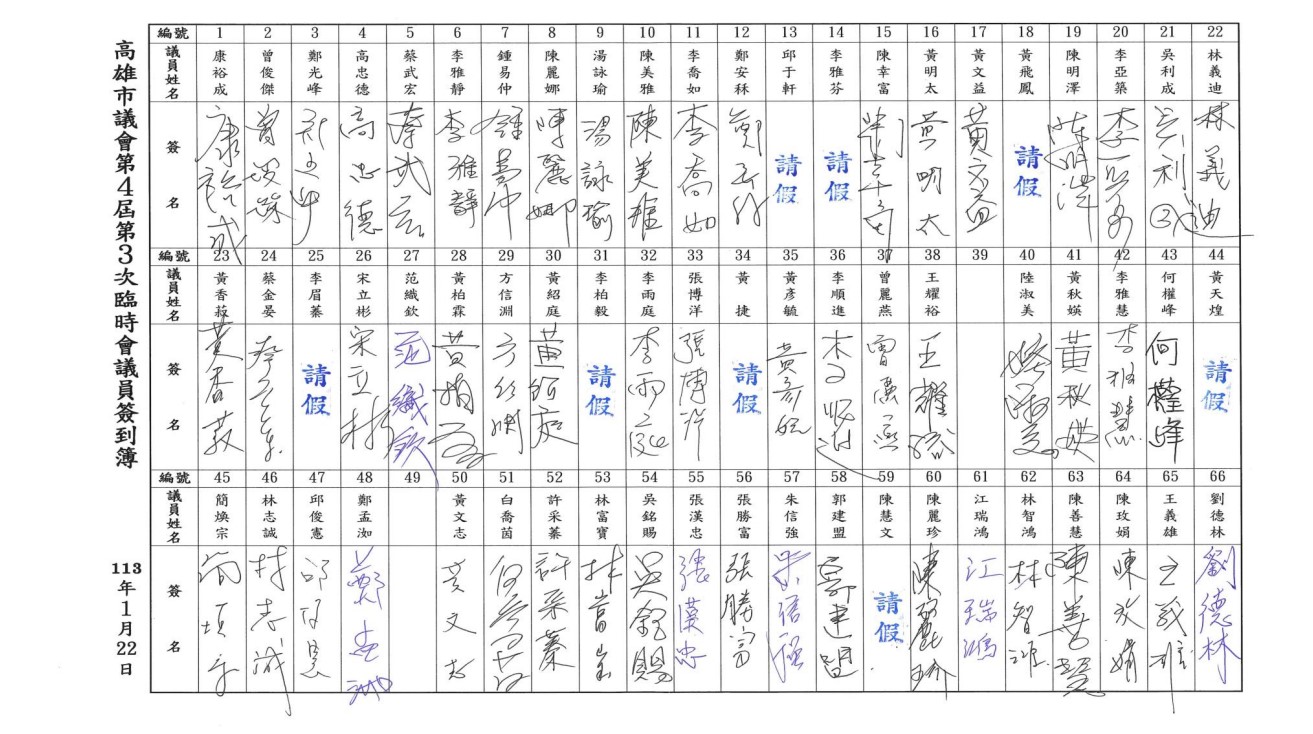 高雄市議會第4屆第3次臨時會議員簽到簿
113年1月22日
編號 1 2 3 4 5 6 7 8 9 10 11 12 13 14 15 16 17 18 19 20 21 22
議員姓名 康裕成 曾俊傑 鄭光峰 高忠德 蔡武宏 李雅靜 鍾易仲 陳麗娜 湯詠瑜 陳美雅 李喬如 鄭安秝 邱于軒 李雅芬 陳幸富 黃明太 黃文益 黃飛鳳 陳明澤 李亞築 吳利成 林義迪
簽名 康裕成 曾俊傑 高忠德 蔡武宏 李雅靜 鍾易仲 陳麗娜 湯詠瑜 陳美雅 李喬如 請假 請假 黃明太 黃文益 請假 陳明澤 吳利成 林義迪
編號 23 24 25 26 27 28 29 30 31 32 33 34 35 36 37 38 39 40 41 42 43 44
議員姓名 黃香菽 蔡金晏 李眉蓁 宋立彬 范織欽 黃柏霖 方信淵 黃紹庭 李柏毅 李雨庭 張博洋 黃捷 黃彥毓 李順進 曾麗燕 王耀裕 陸淑美 黃秋媖 李雅慧 何權峰 黃天煌
簽名 黃香菽 請假 宋立彬 范織欽 黃紹庭 請假 李雨庭 張博洋 請假 黃彥毓 曾麗燕 王耀裕 黃秋媖 李雅慧 何權峰 請假
編號 45 46 47 48 49 50 51 52 53 54 55 56 57 58 59 60 61 62 63 64 65 66
議員姓名 簡煥宗 林志誠 邱俊憲 鄭孟洳 黃文志 白喬茵 許采蓁 林富寶 吳銘賜 張漢忠 張勝富 朱信強 郭建盟 陳慧文 陳麗珍 江瑞鴻 林智鴻 陳善慧 陳玫娟 王義雄 劉德林
簽名 林志誠 黃文志 許采蓁 林富寶 吳銘賜 張漢忠 張勝富 朱信強 郭建盟 請假 陳麗珍 江瑞鴻 林智鴻 陳善慧 陳玫娟 王義雄 劉德林